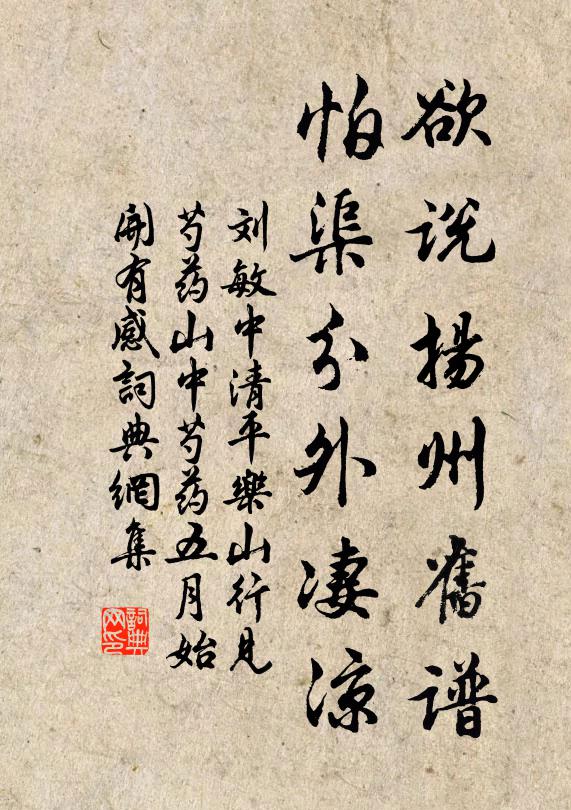 欲说揚州舊谱
怕渠分外凄涼
刘敏中清平樂山行見
芍药山中芍药五月始
開有感詞典網集
詞典
网印